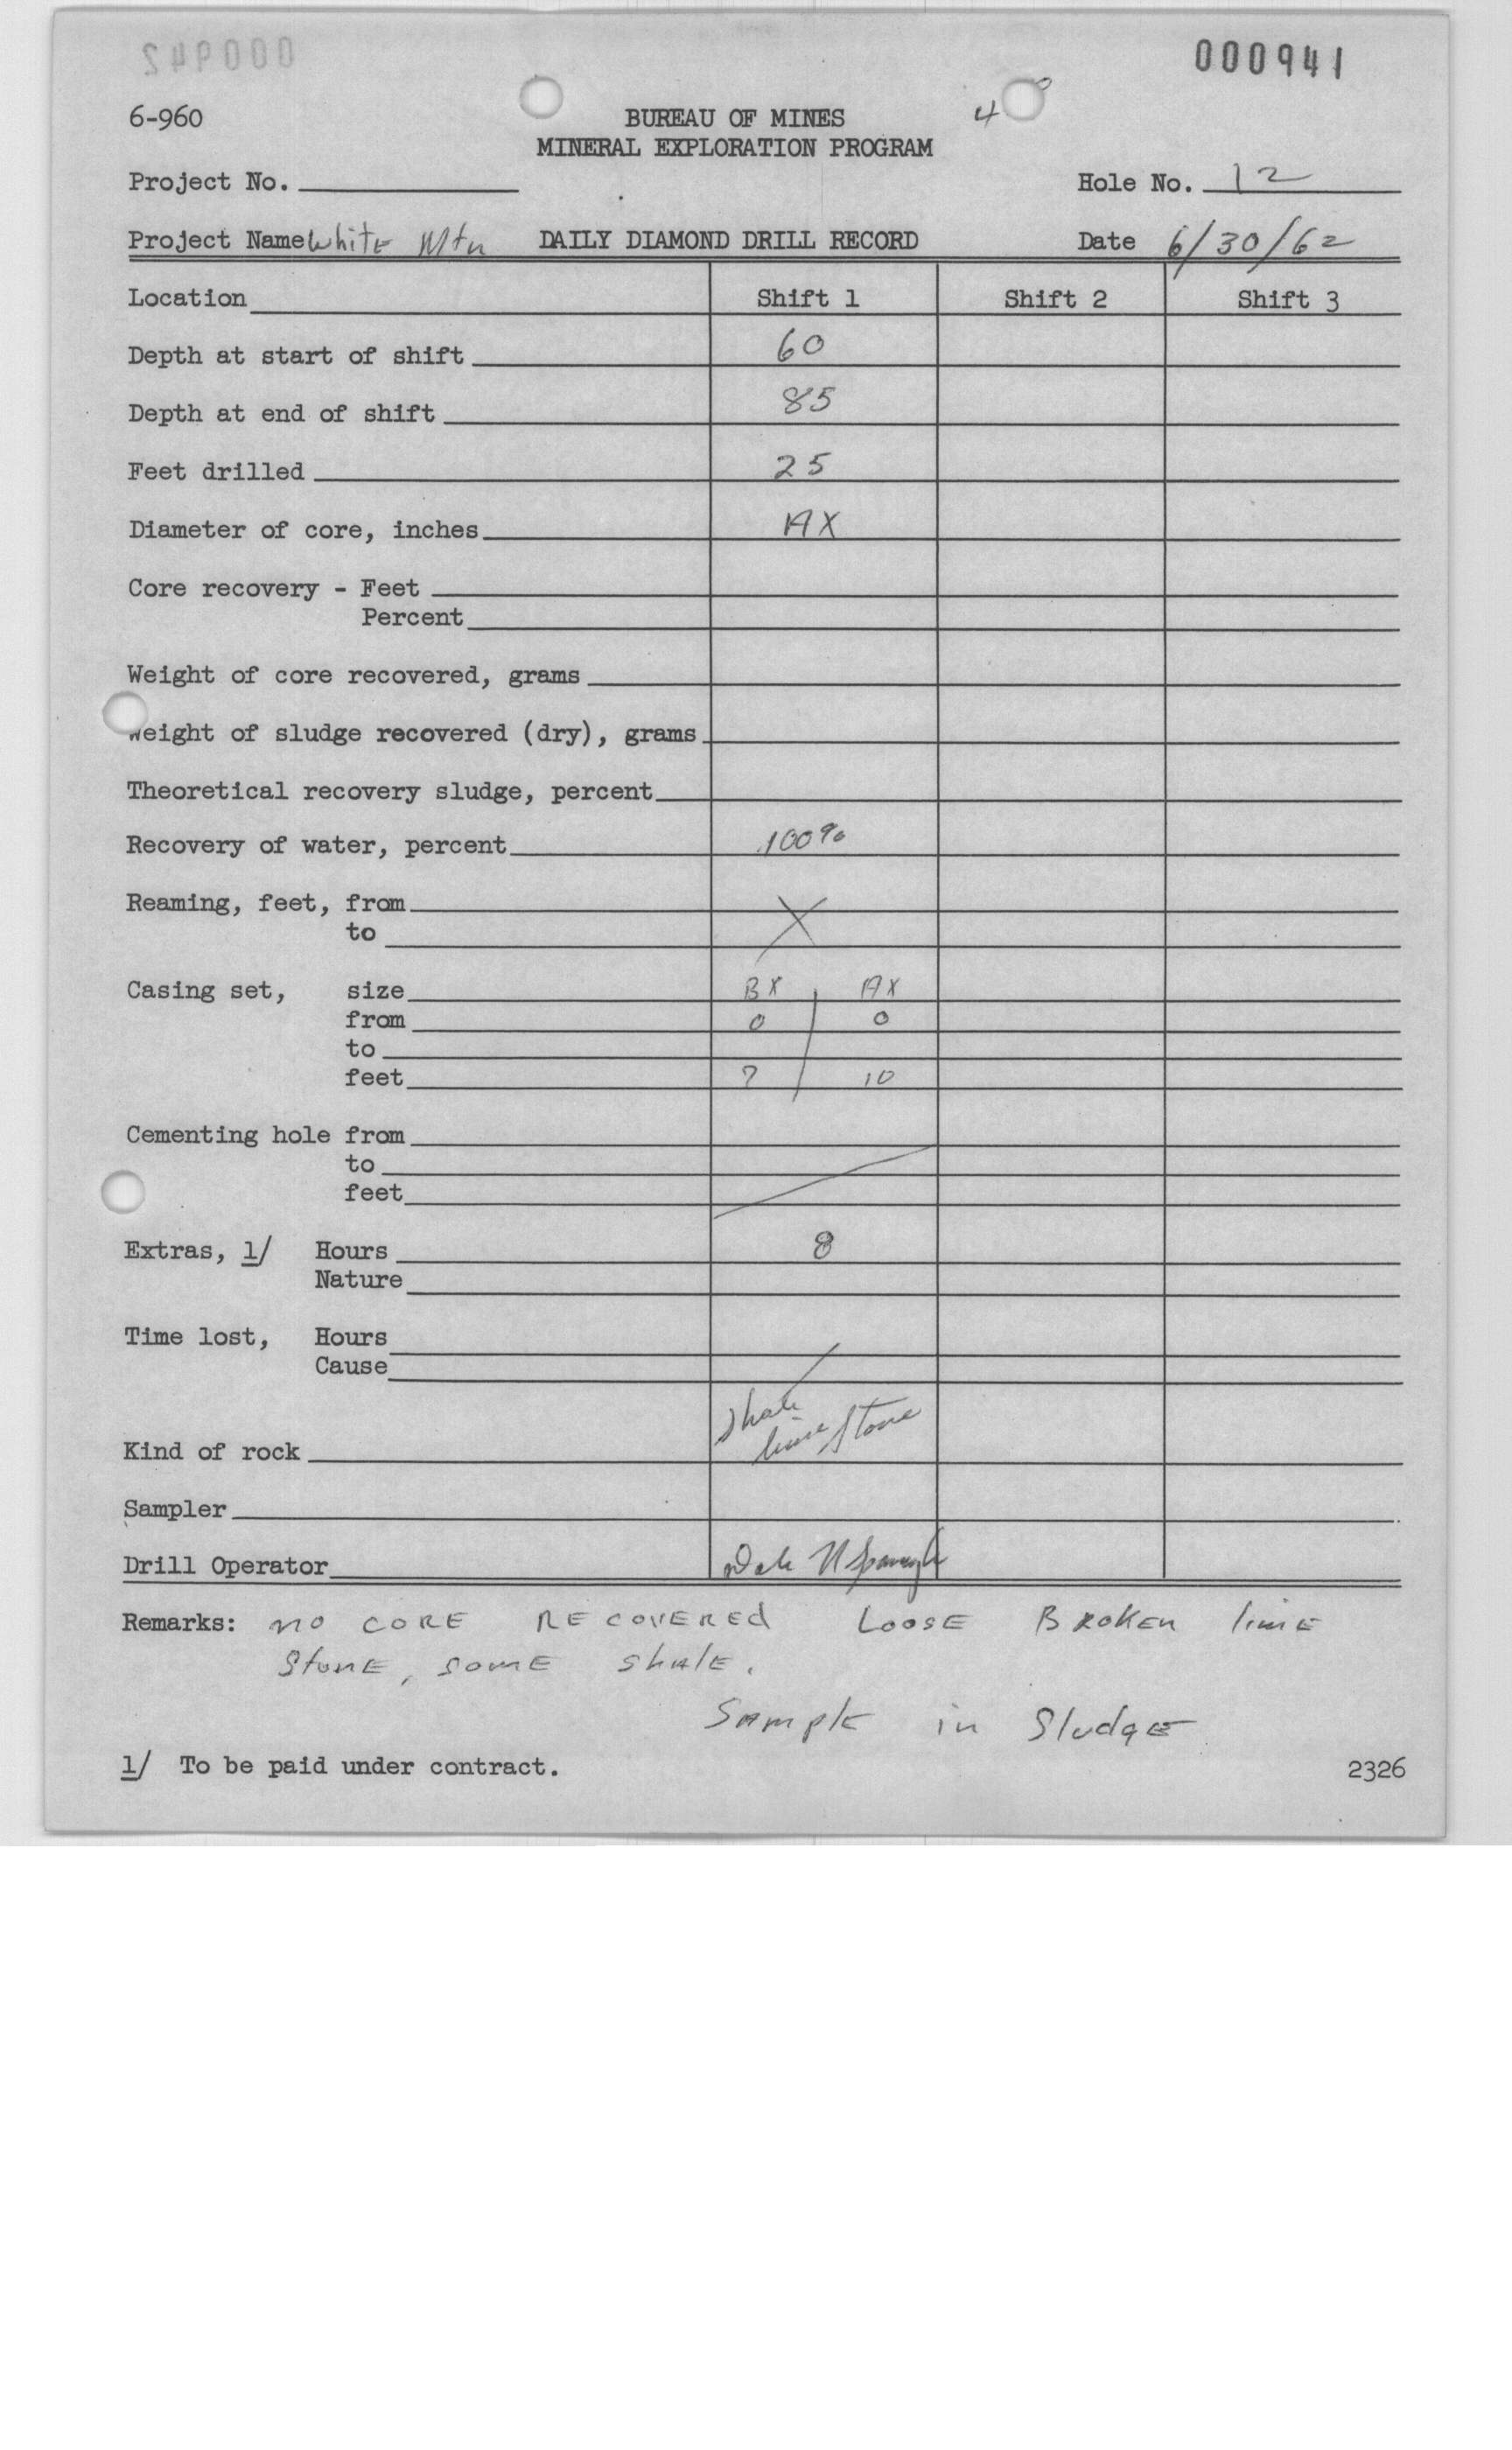 000942
000941
6-960
BUREAU OF MINES
4
MINERAL EXPLORATION PROGRAM
Project No.
Hole No. 12
Project Name White Mtn DAILY DIAMOND DRILL RECORD Date 6/30/62
Location Shift 1 Shift 2 Shift 3
Depth at start of shift 60
Depth at end of shift 85
Feet drilled 25
Diameter of core, inches AX
Core recovery - Feet
Percent
Weight of core recovered, grams
Weight of sludge recovered (dry), grams
Theoretical recovery sludge, percent
Recovery of water, percent 100%
Reaming, feet, from X
to
Casing set, size BX AX
from 0 0
to
feet ? 10
Cementing hole from
to
feet
Extras, 1/ Hours 8
Nature
Time lost, Hours
Cause
shale
Kind of rock lime stone
Sampler
Drill Operator Dale
Remarks: NO CORE RECOVEREd LOOSE BROKEN limE
StonE, SOME ShAlE.
SAmplE in SludgE
1/ To be paid under contract.
2326